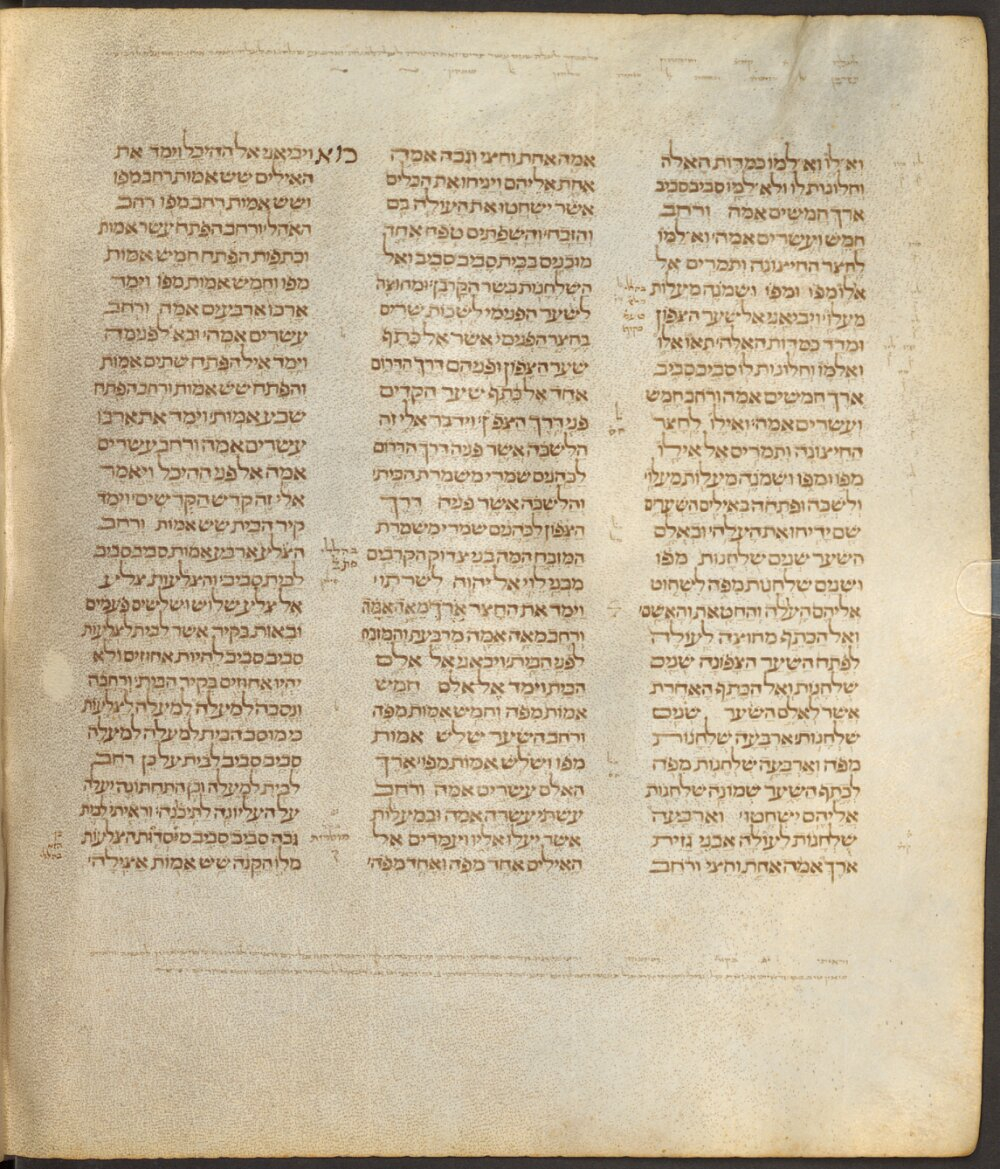 ואילו ואילמו כמדות האלה
וחלונות לו ולאילמו סביב סביב
ארך חמשים אמה ורחב
חמש ועשרים אמה ואילמו
לחצר החיצונה ותמרים אל
אילו מפו ומפו ושמנה מעלות
מעלו ויביאני אל שער הצפון
ומדד כמדות האלה תאו אלו
ואלמו וחלונות לו סביב סביב
ארך חמשים אמה ורחב חמש
ועשרים אמה ואילו לחצר
החיצונה ותמרים אל אילו
מפו ומפו ושמנה מעלות מעלו
ולשכה ופתחה באילים השערים
שם ידיחו את העלה ובאלם
השער שנים שלחנות מפו
ושנים שלחנות מפה לשחוט
אליהם העלה והחטאת והאשם
ואל הכתף מחוצה לעולה
לפתח השער הצפונה שנים
שלחנות ואל הכתף האחרת
אשר לאלם השער שנים
שלחנות ארבעה שלחנות
מפה וארבעה שלחנות מפה
לכתף השער שמונה שלחנות
אליהם ישחטו וארבעה
שלחנות לעולה אבני גזית
ארך אמה אחת וחצי ורחב
אמה אחת וחצי וגבה אמה
אחת אליהם ויניחו את הכלים
אשר ישחטו את העולה בם
והזבח והשפתים טפח אחד
מוכנים בבית סביב סביב ואל
השלחנות בשר הקרבן ומחוצה
לשער הפנימי לשכות שרים
בחצר הפנימי אשר אל כתף
שער הצפון ופניהם דרך הדרום
אחד אל כתף שער הקדים
פני דרך הצפן וידבר אלי זה
הלשכה אשר פניה דרך הדרום
לכהנים שמרי משמרת הבית
והלשכה אשר פניה דרך
הצפון לכהנים שמרי משמרת
המזבח המה בני צדוק הקרבים
מבני לוי אל יהוה לשרתו
וימד את החצר ארך מאה אמה
ורחב מאה אמה מרבעת והמזבח
לפני הבית ויבאני אל אלם
הבית וימד אל אלם חמש
אמות מפה וחמש אמות מפה
ורחב השער שלש אמות
מפו ושלש אמות מפו ארך
האלם עשרים אמה ורחב
עשתי עשרה אמה ובמעלות
אשר יעלו אליו ועמדים אל
האילים אחד מפה ואחד מפה
מא ויביאני אל ההיכל וימד את
האילים שש אמות רחב מפו
ושש אמות רחב מפו רחב
האהל ורחב הפתח עשר אמות
וכתפות הפתח חמש אמות
מפו וחמש אמות מפו וימד
ארכו ארבעים אמה ורחב
עשרים אמה ובא לפנימה
וימד איל הפתח שתים אמות
והפתח שש אמות ורחב הפתח
שבע אמות וימד את ארכו
עשרים אמה ורחב עשרים
אמה אל פני ההיכל ויאמר
אלי זה קדש הקדשים וימד
קיר הבית שש אמות ורחב
הצלע ארבע אמות סביב סביב
לבית סביב והצלעות צלע
אל צלע שלוש ושלשים פעמים
ובאות בקיר אשר לבית לצלעות
סביב סביב להיות אחוזים ולא
יהיו אחוזים בקיר הבית ורחבה
ונסבה למעלה למעלה לצלעות
כי מוסב הבית למעלה למעלה
סביב סביב לבית על כן רחב
לבית למעלה וכן התחתונה יעלה
על העליונה לתיכונה וראיתי לבית
גבה סביב סביב מיסדות הצלעות
מלו הקנה שש אמות אצילה